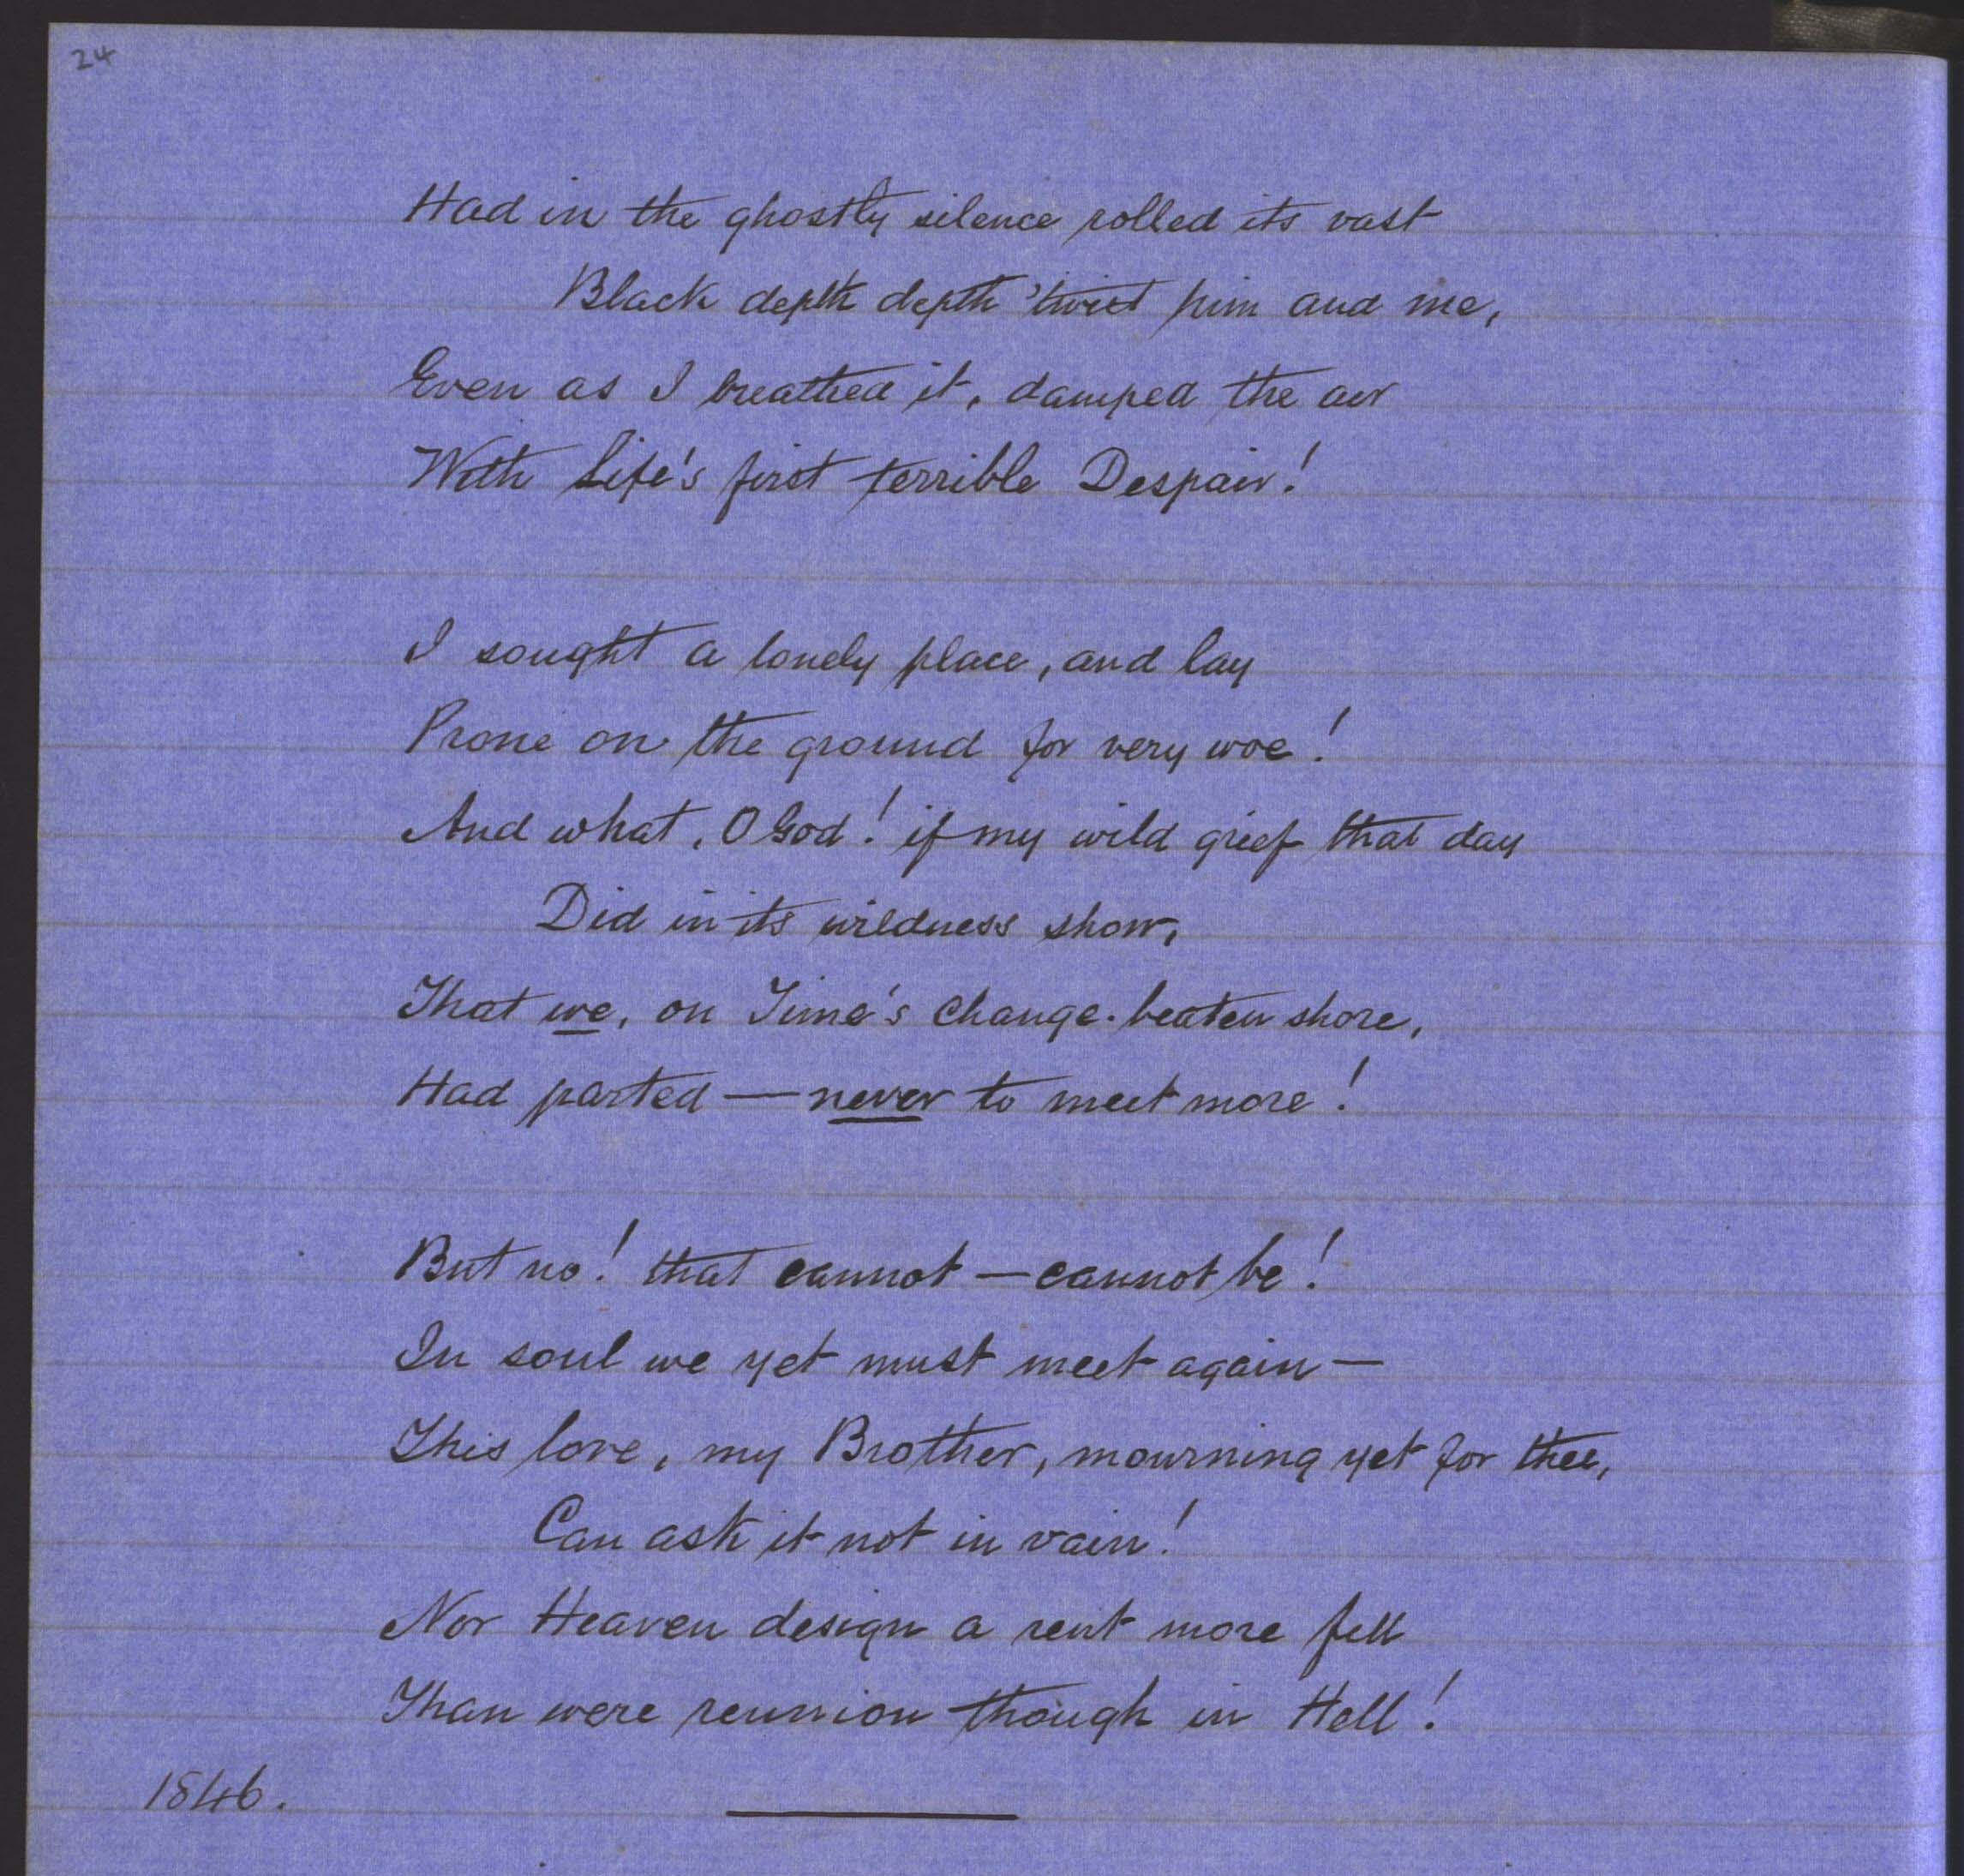 24
Had in the ghostly silence rolled its vast
Black depth depth 'twixt him and me,
Even as I breathed it, damped the air
With Life's first terrible Despair!
I sought a lonely place, and lay
Prone on the ground for very woe!
And what, O God! if my wild grief that day
Did in its wildness show,
That we, on Time's change-beaten shore,
Had parted — never to meet more!
But no! that cannot — cannot be!
In soul we yet must meet again —
This love, my Brother, mourning yet for thee,
Can ask it not in vain!
Nor Heaven design a rent more fell
Than were reunion though in Hell!
1846.